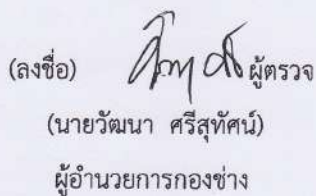 (ลงชื่อ) ผู้ตรวจ
(นายวัฒนา ศรีสุทัศน์)
ผู้อำนวยการกองช่าง